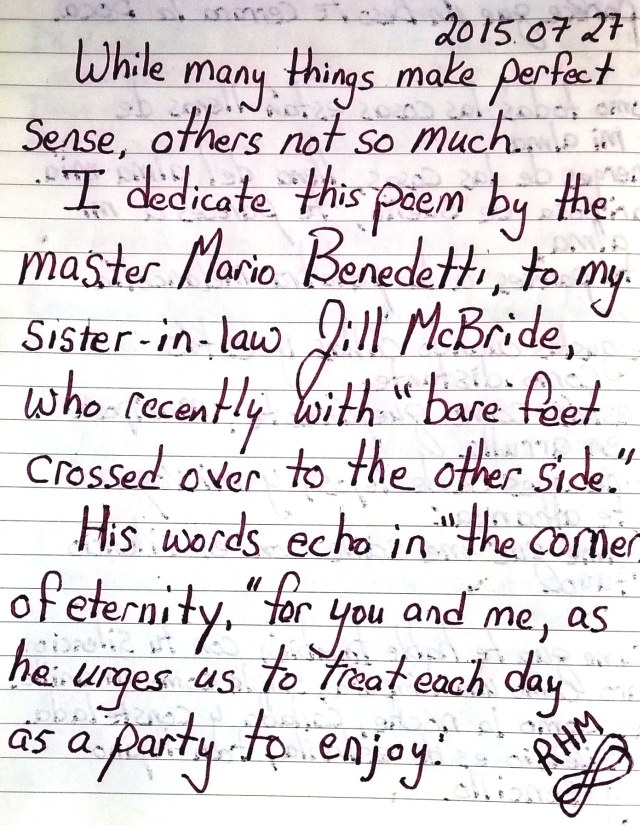 2015.07 27
While many things make perfect
sense, others not so much.
I dedicate this poem by the
master Mario Benedetti, to my
sister-in-law Jill McBride,
who recently with "bare feet
crossed over to the other side."
His words echo in "the corner
of eternity," for you and me, as
he urges us to treat each day
as a party to enjoy:
RHM